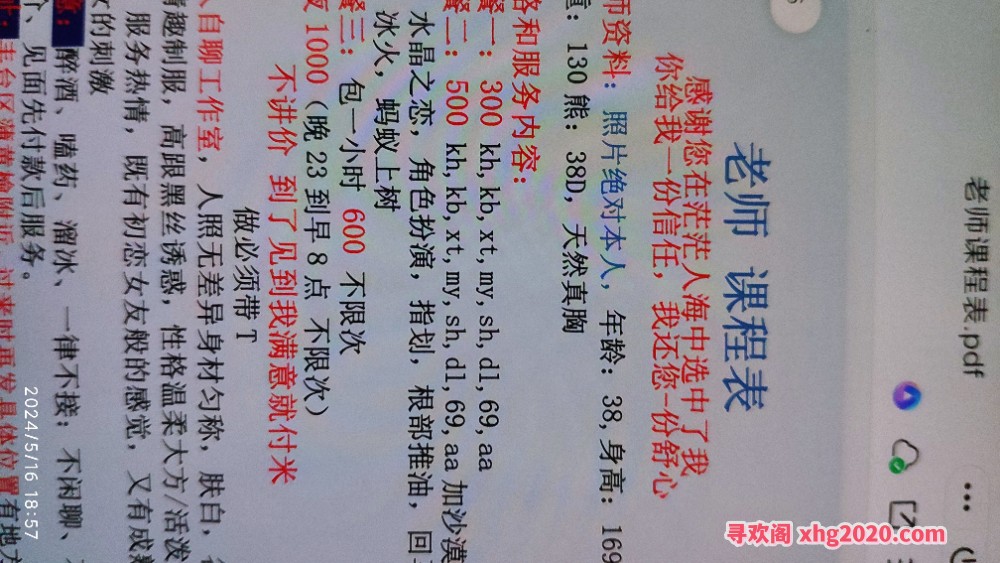 老师课程表.pdf
老师 课程表
感谢您在茫茫人海中选中了我
你给我一份信任，我还您一份舒心
师资料：照片绝对本人，年龄：38,身高：169
重：130 熊：38D，天然真胸
格和服务内容：
餐一：300 kh,kb,xt,my,sh,dl,69,aa
餐二：500 kh,kb,xt,my,sh,dl,69,aa 加沙漠
水晶之恋，角色扮演，指划，根部推油，回
冰火，蚂蚁上树
餐三：包一小时 600 不限次
夜 1000（晚 23 到早 8 点 不限次）
不讲价 到了见到我满意就付米
做必须带T
人自聊工作室，人照无差异身材匀称，肤白，
情趣制服，高跟黑丝诱惑，性格温柔大方/活泼
服务热情，既有初恋女友般的感觉，又有成熟
的刺激
意：醉酒、嗑药、溜冰、一律不接；不闲聊、
介、见面先付款后服务。
丰台区蒲黄榆附近，过来时再发具体位置有地方
2024/5/16 18:57
寻欢阁 xhg2020.com